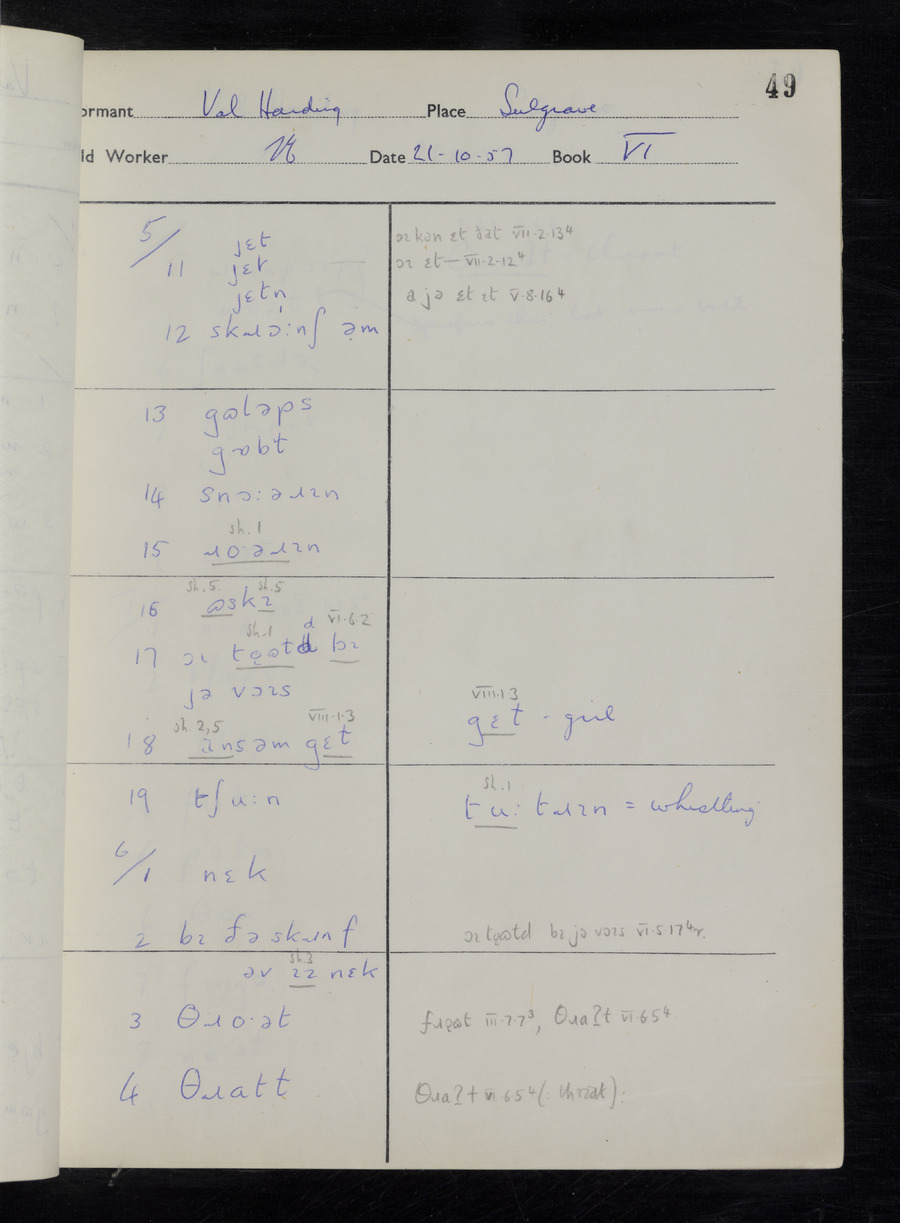 49
ormant Val Harding Place Sulgrave
ld Worker Date 21-10-57 Book VI
5/11 jɛt
jɛt
jɛtn̩
ɔɪ kən ɛt ðat VII.2.13⁴
ɔɪ ɛt— VII.2.12⁴
a jə ɛt ɪt V.8.16⁴
12 skɹɔ:nʃ əm
13 gɒləps
gɒbt
14 snɔ:əɹɪn
sh.1
15 ɹo·əɹɪn
sh.5 sh.5
16 ɒskɪ
sh.1 d VI.6.2
17 ɔɪ tǫɒtd bɪ
jə vɔɪs
sh.2,5 VIII.1.3
18 ansəm gɛt
VIII.1.3
gɛt - girl
19 tʃu:n
sh.1
tu:tɹɪn = whistling
6/1 nɛk
2 bɪ ðə skɹɪnf
ɔɪ tǫɒtd bɪ jə vɔɪs VI.5.17⁴
sh.3
əv ɪz nɛk
3 θɹo·ət
fɹǫɒt III.7.7³, θɹaʔt VI.6.5⁴
4 θɹatt
θɹaʔt VI.6.5⁴ (= throat).